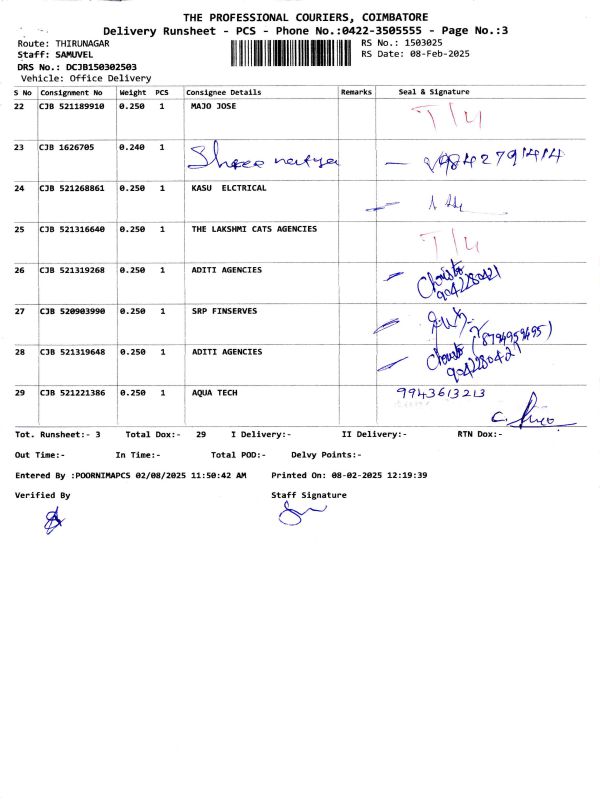 THE PROFESSIONAL COURIERS, COIMBATORE
Delivery Runsheet - PCS - Phone No.:0422-3505555 - Page No.:3
Route: THIRUNAGAR RS No.: 1503025
Staff: SAMUVEL RS Date: 08-Feb-2025
DRS No.: DCJB150302503
Vehicle: Office Delivery
S No Consignment No Weight PCS Consignee Details Remarks Seal & Signature
22 CJB 521189910 0.250 1 MAJO JOSE
23 CJB 1626705 0.240 1 9842791414
24 CJB 521268861 0.250 1 KASU ELCTRICAL
25 CJB 521316640 0.250 1 THE LAKSHMI CATS AGENCIES
26 CJB 521319268 0.250 1 ADITI AGENCIES
27 CJB 520903990 0.250 1 SRP FINSERVES
28 CJB 521319648 0.250 1 ADITI AGENCIES
29 CJB 521221386 0.250 1 AQUA TECH 9943613213
Tot. Runsheet:- 3 Total Dox:- 29 I Delivery:- II Delivery:- RTN Dox:-
Out Time:- In Time:- Total POD:- Delvy Points:-
Entered By :POORNIMAPCS 02/08/2025 11:50:42 AM Printed On: 08-02-2025 12:19:39
Verified By Staff Signature